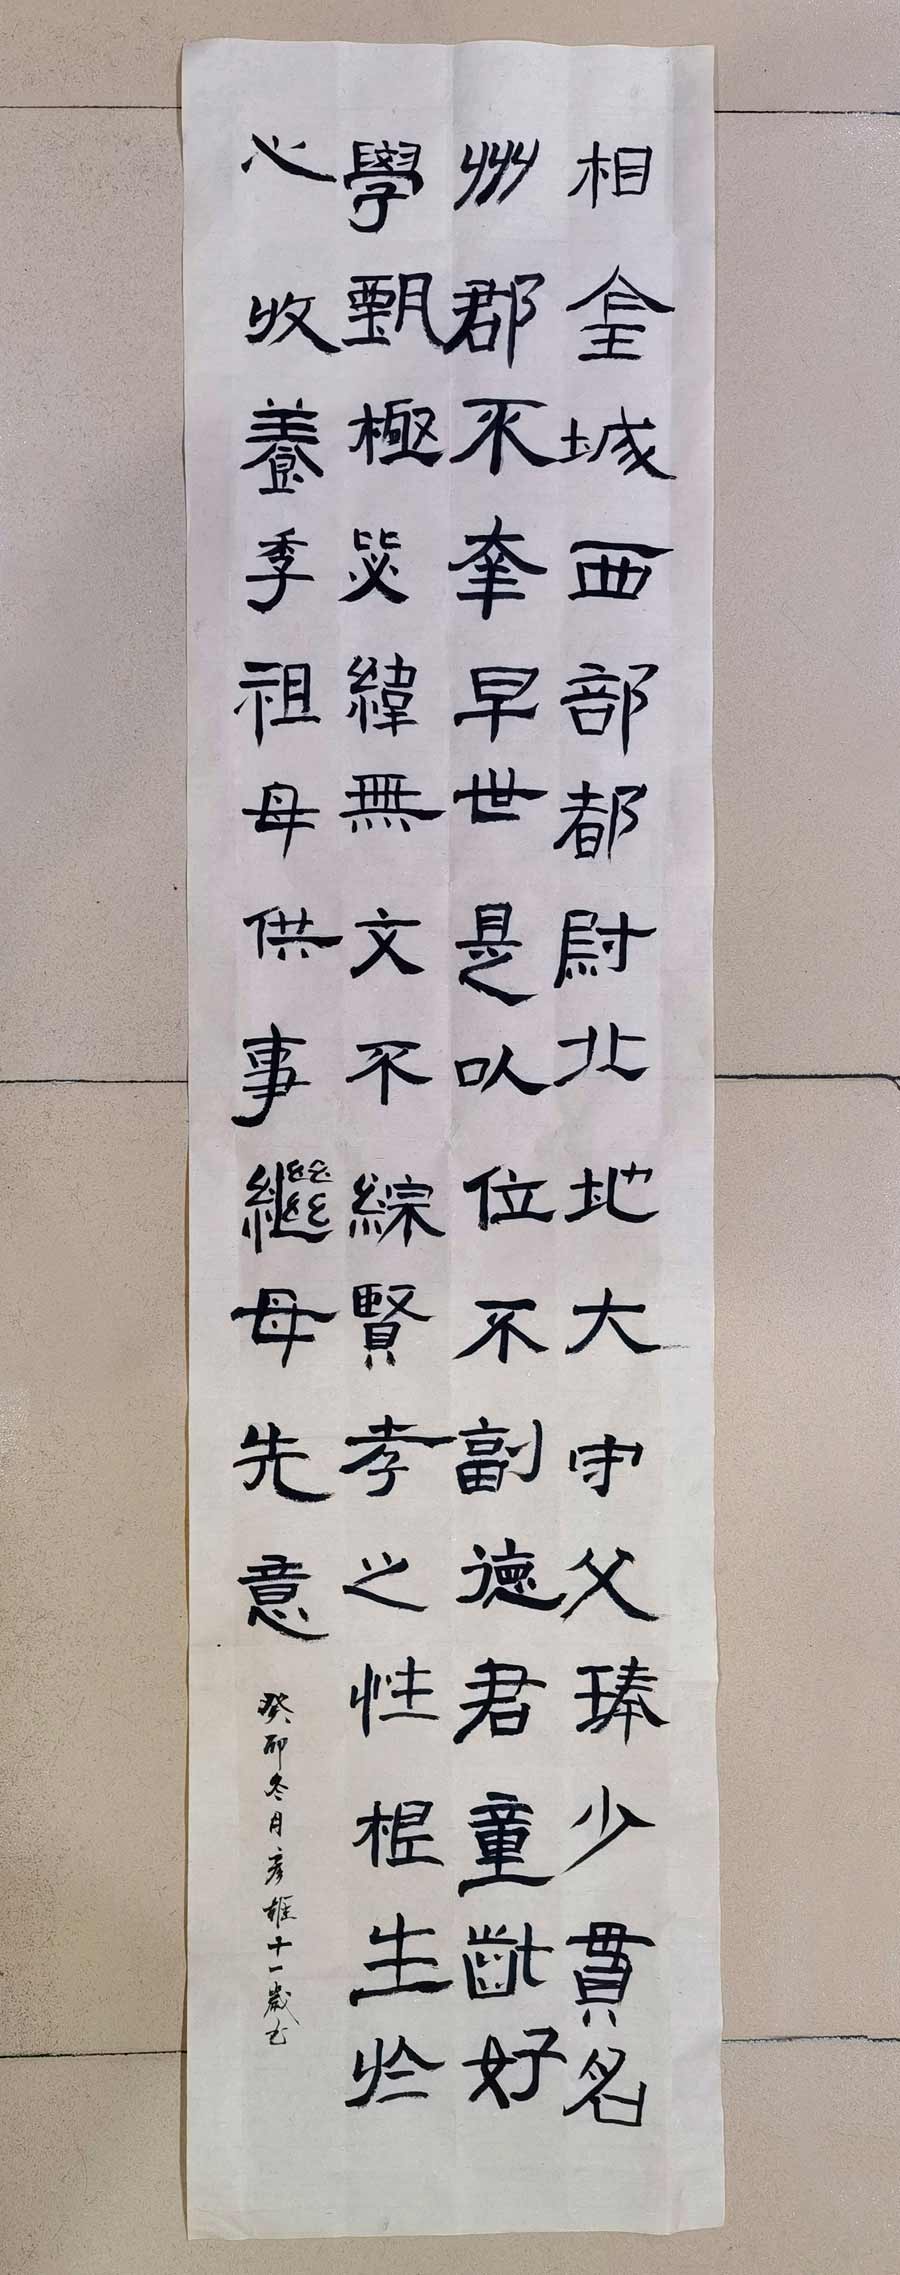 相金城西部都尉北地大守父琫少貫名
州郡不幸早世是以位不副德君童齔好
學甄極毖緯無文不綜賢孝之性根生於
心收養季祖母供事繼母先意
癸卯冬月彦雄十一歲書